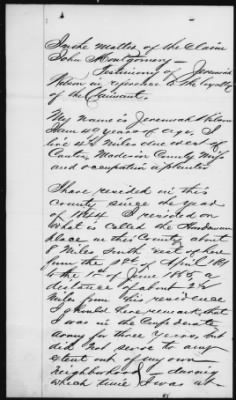 In the matter of the Claim
John Montgomery —
Testimony of Jeremiah
Nelson in reference to the loyalty
of the Claimant.
My name is Jeremiah Nelson
I am 49 years of age, I
live 4½ Miles due west of
Canton, Madison County Miss
and occupation a planter
I have resided in this
county since the year
of 1844. I resided on
What is called the
place in this County about
9 Miles South west of here
from the 1st of April 1861
to the 1st of June 1865, a
distance of about 2½
Miles from his residence
I should here remark that
I was in the Confederate
army for three years, but
did not serve to any
extent out of my own
neighborhood — during
which time I was at-